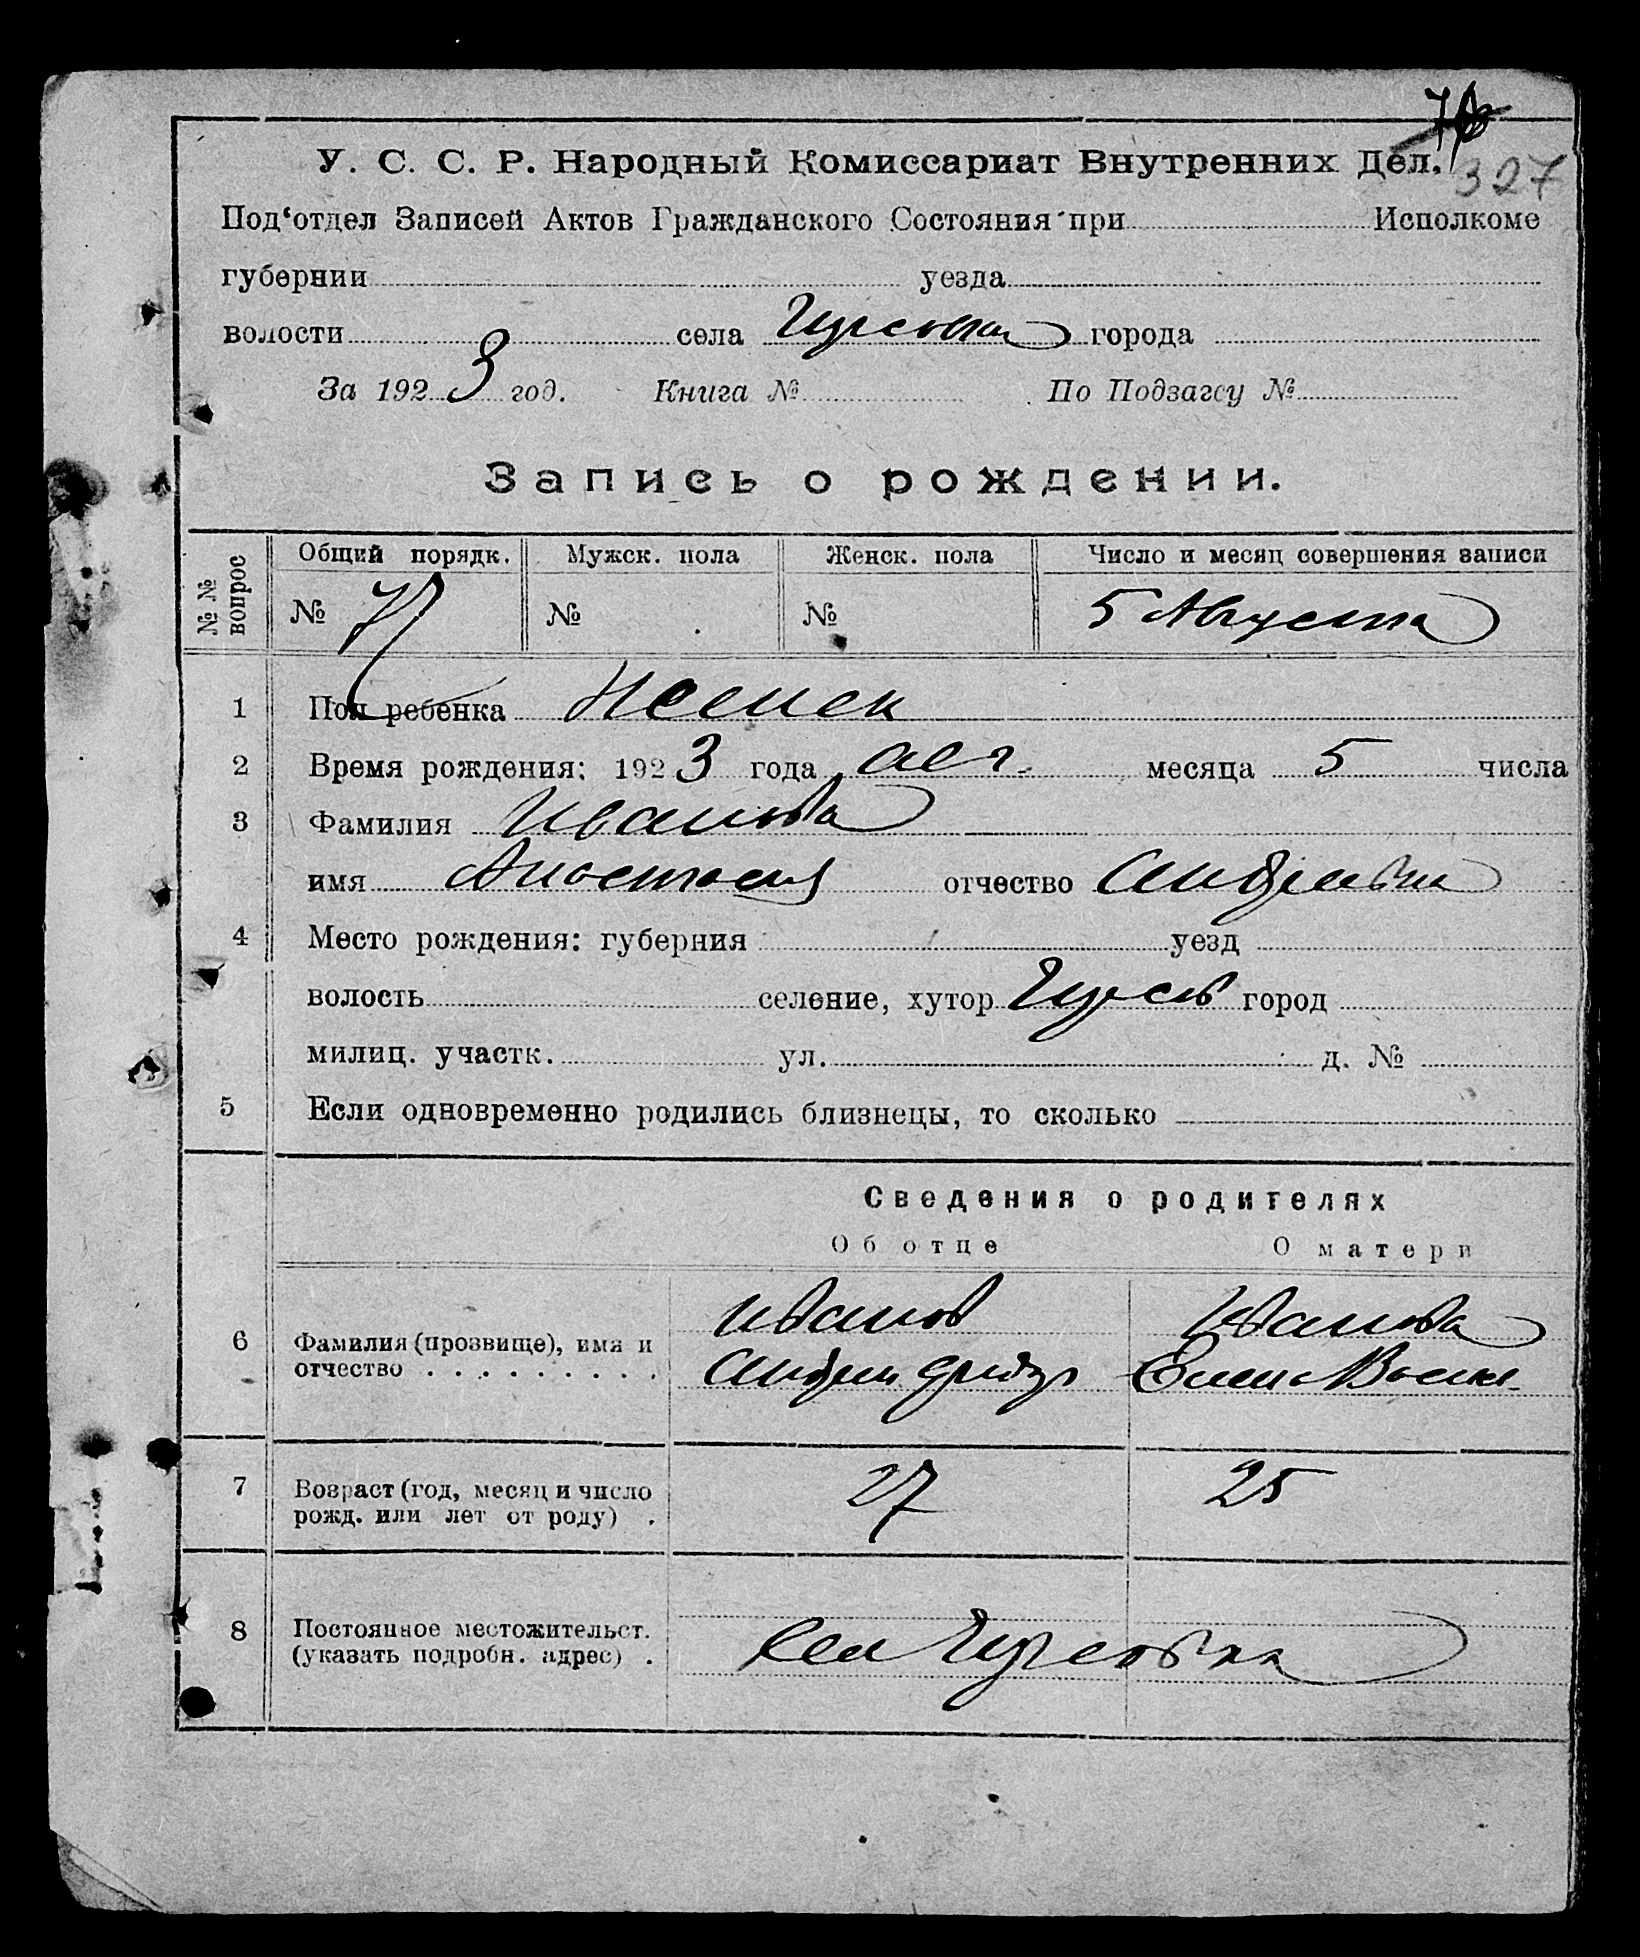 327
У. С. С. Р. Народный Комиссариат Внутренних Дел.
Под‘отдел Записей Актов Гражданского Состояния при Исполкоме
губернии уезда
волости села города
За 1923 год. Книга № По Подзагсу №
Запись о рождении.
№№ вопрос Общий порядк. Мужск. пола Женск. пола Число и месяц совершения записи
№ № № 5 Августа
1 Пол ребенка Женск
2 Время рождения: 1923 года авг. месяца 5 числа
3 Фамилия Иванова
имя Анастасия отчество Андреевна
4 Место рождения: губерния уезд
волость селение, хутор город
милиц. участк. ул. д. №
5 Если одновременно родились близнецы, то сколько
Сведения о родителях
Об отце О матери
6 Фамилия (прозвище), имя и Иванов Иванова
отчество Андрей Елена
7 Возраст (год, месяц и число 27 25
рожд. или лет от роду)
8 Постоянное местожительст.
(указать подробн. адрес)